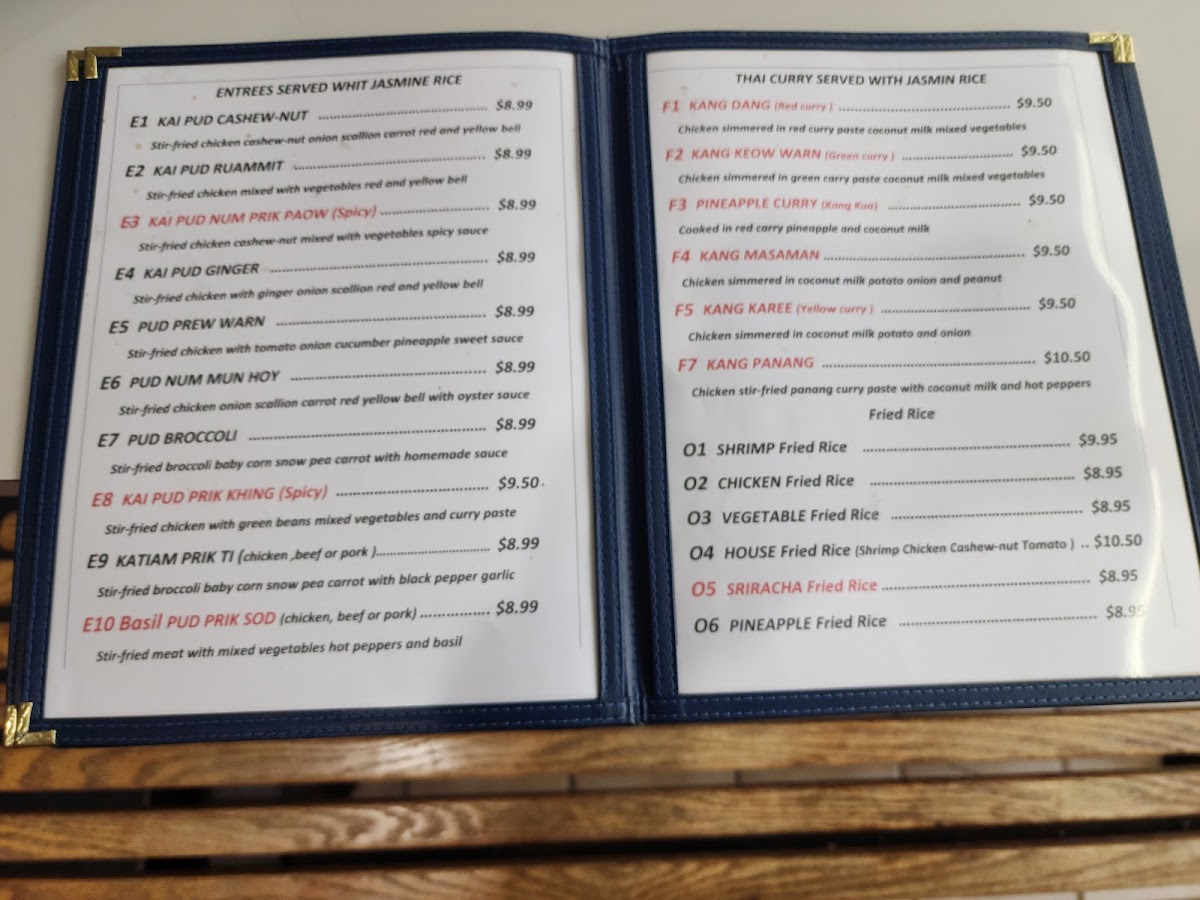 ENTREES SERVED WHIT JASMINE RICE
E1 KAI PUD CASHEW-NUT ........................................ $8.99
Stir-fried chicken cashew-nut onion scallion carrot red and yellow bell
E2 KAI PUD RUAMMIT ........................................ $8.99
Stir-fried chicken mixed with vegetables red and yellow bell
E3 KAI PUD NUM PRIK PAOW (Spicy) ........................ $8.99
Stir-fried chicken cashew-nut mixed with vegetables spicy sauce
E4 KAI PUD GINGER ........................................ $8.99
Stir-fried chicken with ginger onion scallion red and yellow bell
E5 PUD PREW WARN ........................................ $8.99
Stir-fried chicken with tomato onion cucumber pineapple sweet sauce
E6 PUD NUM MUN HOY ........................................ $8.99
Stir-fried chicken onion scallion carrot red yellow bell with oyster sauce
E7 PUD BROCCOLI ........................................ $8.99
Stir-fried broccoli baby corn snow pea carrot with homemade sauce
E8 KAI PUD PRIK KHING (Spicy) .............................. $9.50.
Stir-fried chicken with green beans mixed vegetables and curry paste
E9 KATIAM PRIK TI (chicken ,beef or pork )........................ $8.99
Stir-fried broccoli baby corn snow pea carrot with black pepper garlic
E10 Basil PUD PRIK SOD (chicken, beef or pork) ............... $8.99
Stir-fried meat with mixed vegetables hot peppers and basil
THAI CURRY SERVED WITH JASMIN RICE
F1 KANG DANG (Red curry ) ........................................ $9.50
Chicken simmered in red curry paste coconut milk mixed vegetables
F2 KANG KEOW WARN (Green curry ) ........................... $9.50
Chicken simmered in green carry paste coconut milk mixed vegetables
F3 PINEAPPLE CURRY (Kang Kua) .............................. $9.50
Cooked in red carry pineapple and coconut milk
F4 KANG MASAMAN ........................................ $9.50
Chicken simmered in coconut milk potato onion and peanut
F5 KANG KAREE (Yellow curry ) .............................. $9.50
Chicken simmered in coconut milk potato and onion
F7 KANG PANANG ........................................ $10.50
Chicken stir-fried panang curry paste with coconut milk and hot peppers
Fried Rice
O1 SHRIMP Fried Rice ........................................ $9.95
O2 CHICKEN Fried Rice ........................................ $8.95
O3 VEGETABLE Fried Rice ........................................ $8.95
O4 HOUSE Fried Rice (Shrimp Chicken Cashew-nut Tomato ) .. $10.50
O5 SRIRACHA Fried Rice ........................................ $8.95
O6 PINEAPPLE Fried Rice ........................................ $8.95